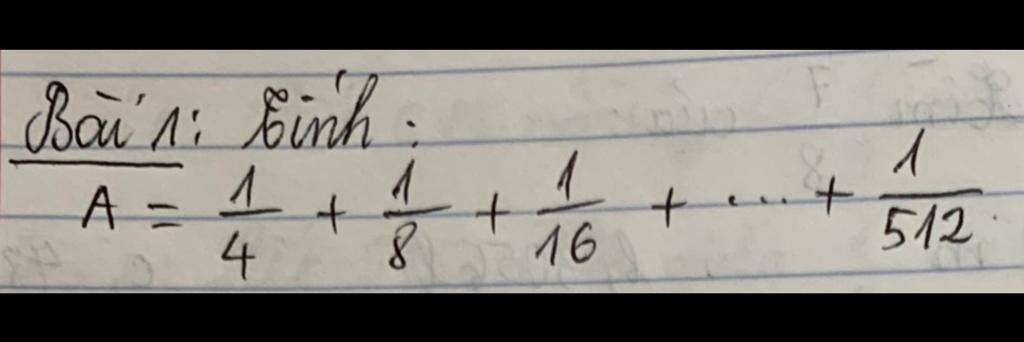 Bài 1: Tính:
A = 1/4 + 1/8 + 1/16 + ... + 1/512